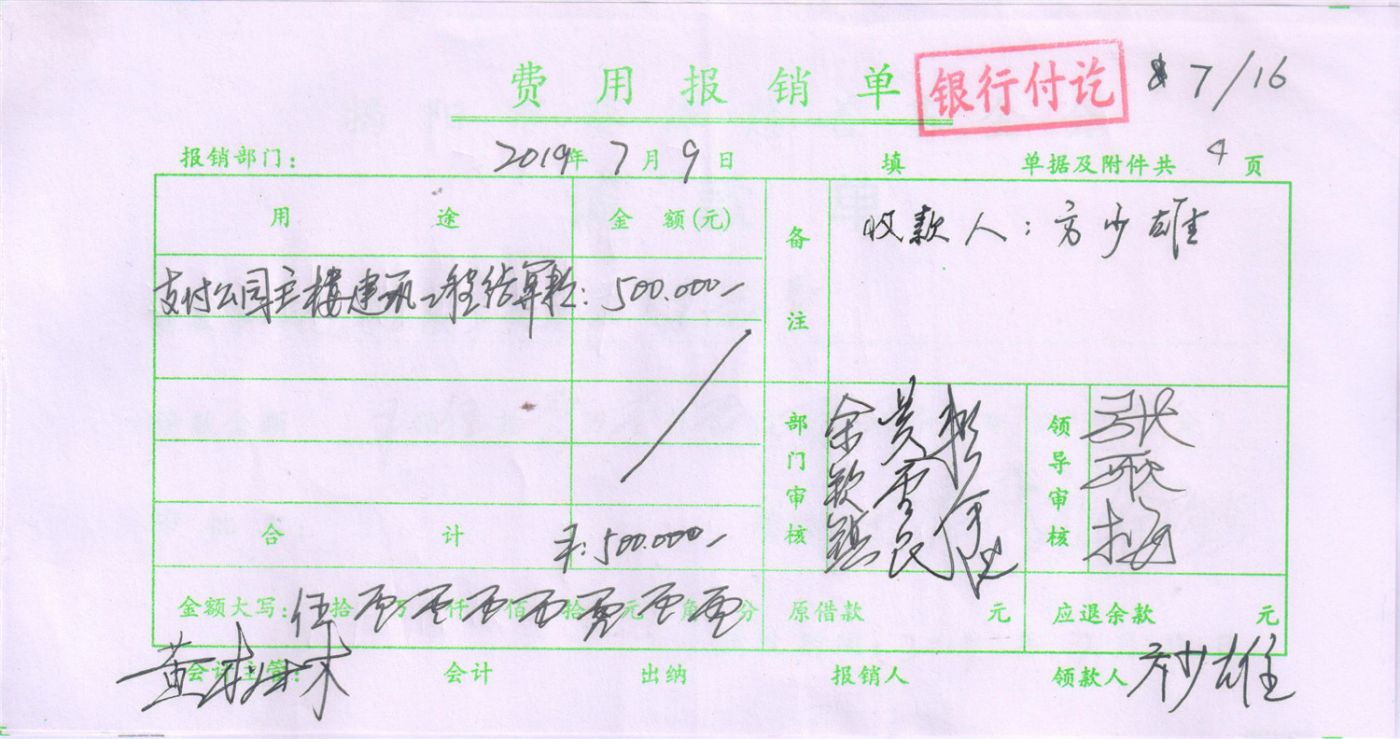 费用报销单 银行付讫 7/16
报销部门： 2019年7月9日 填 单据及附件共 4 页
用 途 金 额(元) 备注 收款人：方少雄
支付公司主楼建筑工程结算款：500.000-
部门审核 余 领导审核 张
合 计 ￥：500.000-
金额大写：伍拾零万零仟零佰零拾零元零角零分 原借款 元 应退余款 元
会计主管： 会计 出纳 报销人 领款人 方少雄